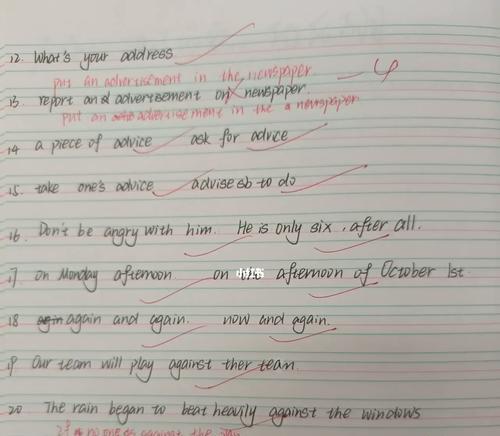 12. What's your address
put an advertisement in the newspaper.
13. report and advertisement on newspaper.
put an advertisement in the a newspaper
14 a piece of advice ask for advice
15. take one's advice advise sb to do
16. Don't be angry with him. He is only six, after all.
17. on Monday afternoon on the afternoon of October 1st.
小红书
18 again and again. now and again.
19. Our team will play against ther team.
20. The rain began to beat heavily against the windows
no one is against the